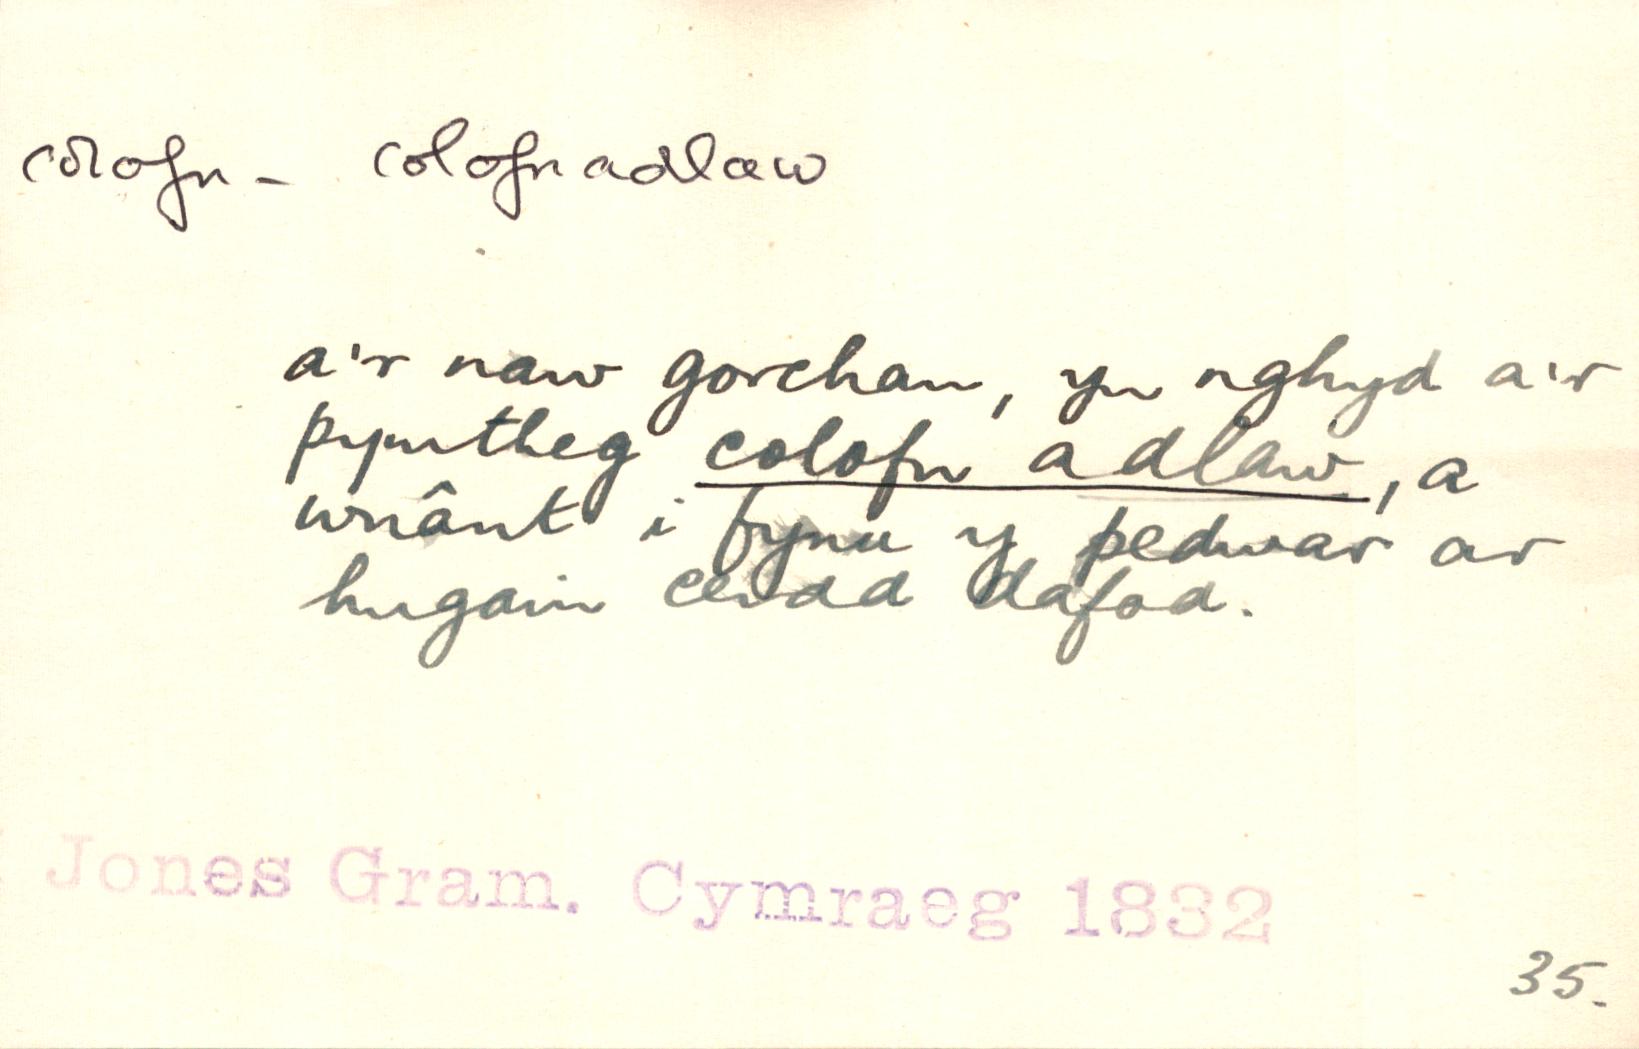 colofn - colofn adlaw
a'r naw gorchan, yn nghyd a'r
pymtheg colofn adlaw, a
wnânt i fynu y pedwar ar
hugain cerdd dafod.
Jones Gram. Cymraeg 1832
35.